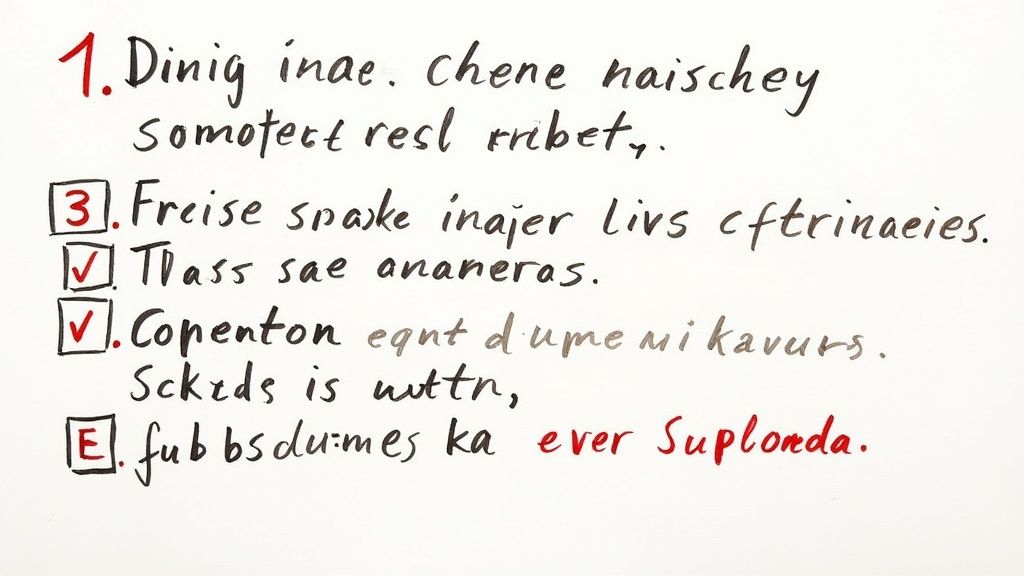 1. Dinig inae. Chene naischey
somotect resl rribet,.
3. Freise spaske inajer livs cftrinaeies.
✓. Tlass sae ananeras.
✓. Copenton eqnt d.upme mi kavurs.
Sckids is wottn,
E. fub bsdu:mes ka ever Suplonda.